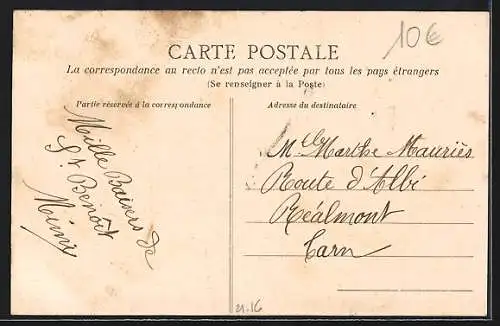 10€
CARTE POSTALE
La correspondance au recto n'est pas acceptée par tous les pays étrangers
(Se renseigner à la Poste)
Partie réservée à la correspondance
Mille Baisers de
St Benoit
Mimi
Adresse du destinataire
Mlle Marthe Mauriès
Route d'Albi
Réalmont
Tarn